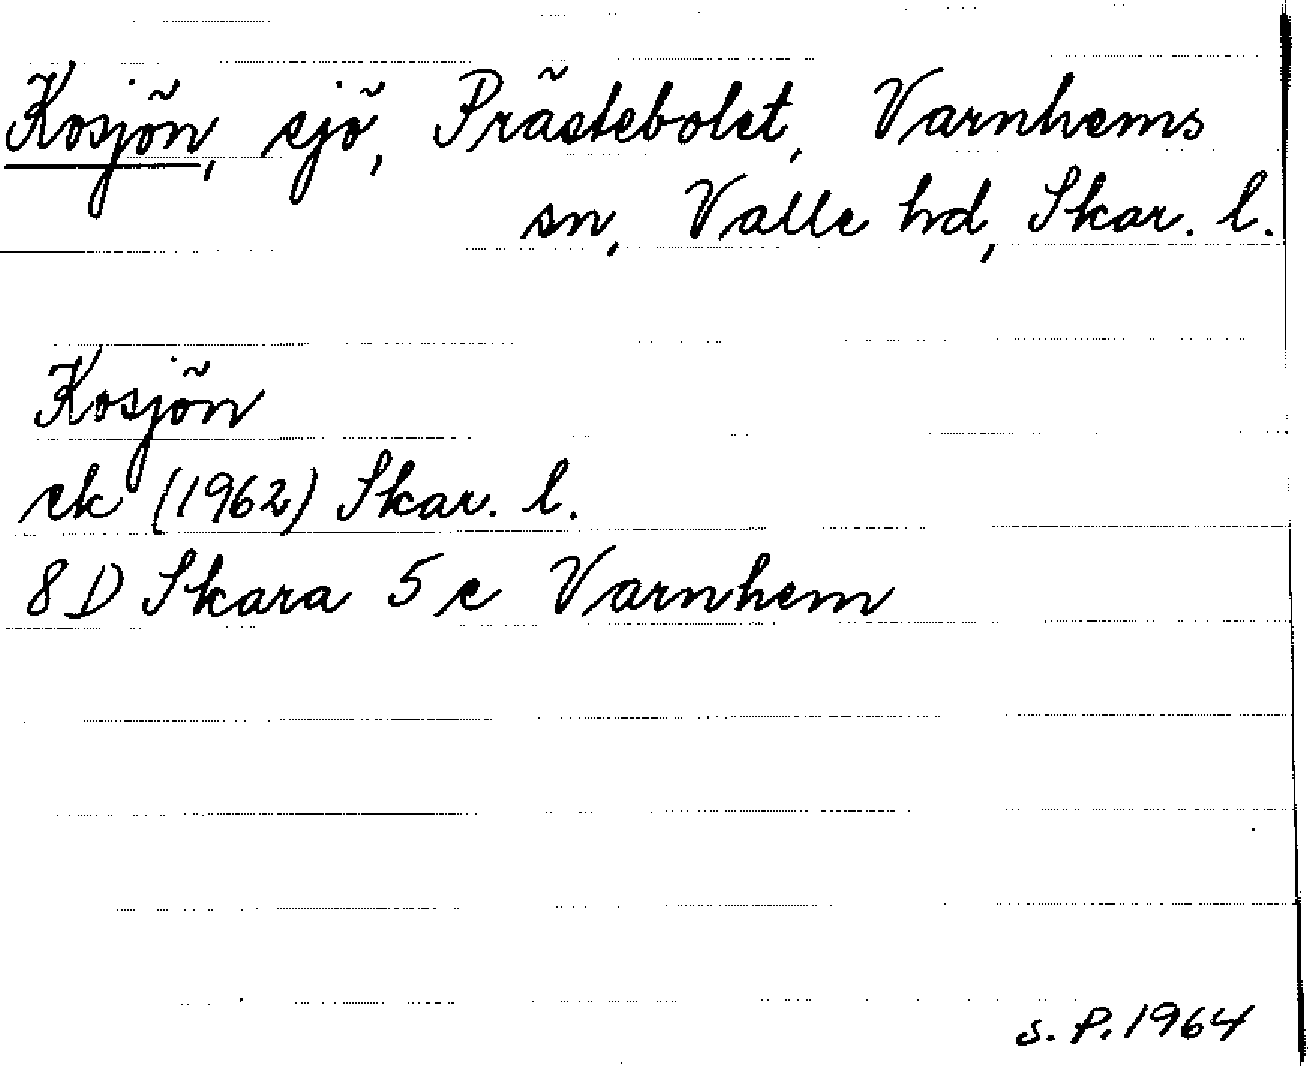 Kosjön, sjö, Prästebolet, Varnhems
sn, Valle hd, Skar. l.
Kosjön
ek (1962) Skar. l.
8D Skara 5e Varnhem
S.P. 1964